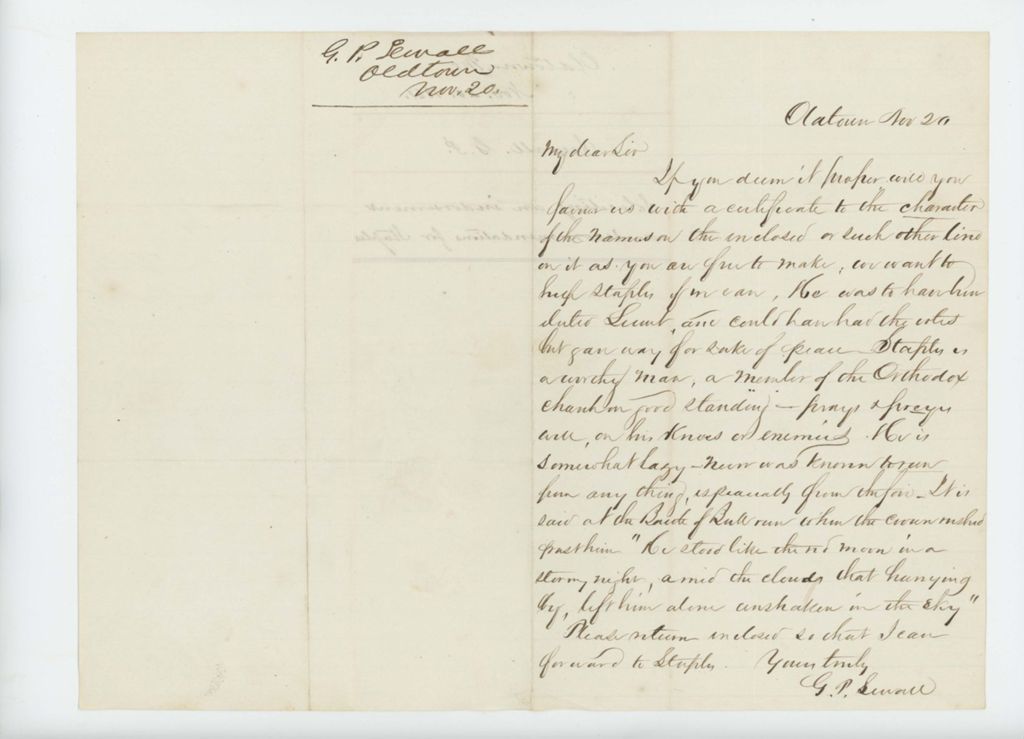 G. P. Sewall
Oldtown
Nov. 20.
Oldtown Nov 20
My dear Sir
If you deem it proper will you
favour us with a certificate to the character
of the names on the inclosed or such other line
on it as you are free to make, we want to
help Staples if we can, He was to have been
Lieut, and could have had the votes
but gave way for sake of peace Staples is
a worthy man, a member of the Orthodox
church in good standing - prays &
well, on his knees or enemies. He is
somewhat lazy - never was known to run
from any thing, especially from the foe - It is
said at the Battle of Bull run when the crowd rushed
past him "He stood like the red moon in a
stormy night, amid the clouds that hurrying
by, left him alone unshaken in the sky"
Please return inclosed so that I can
forward to Staples. Yours truly
G. P. Sewall